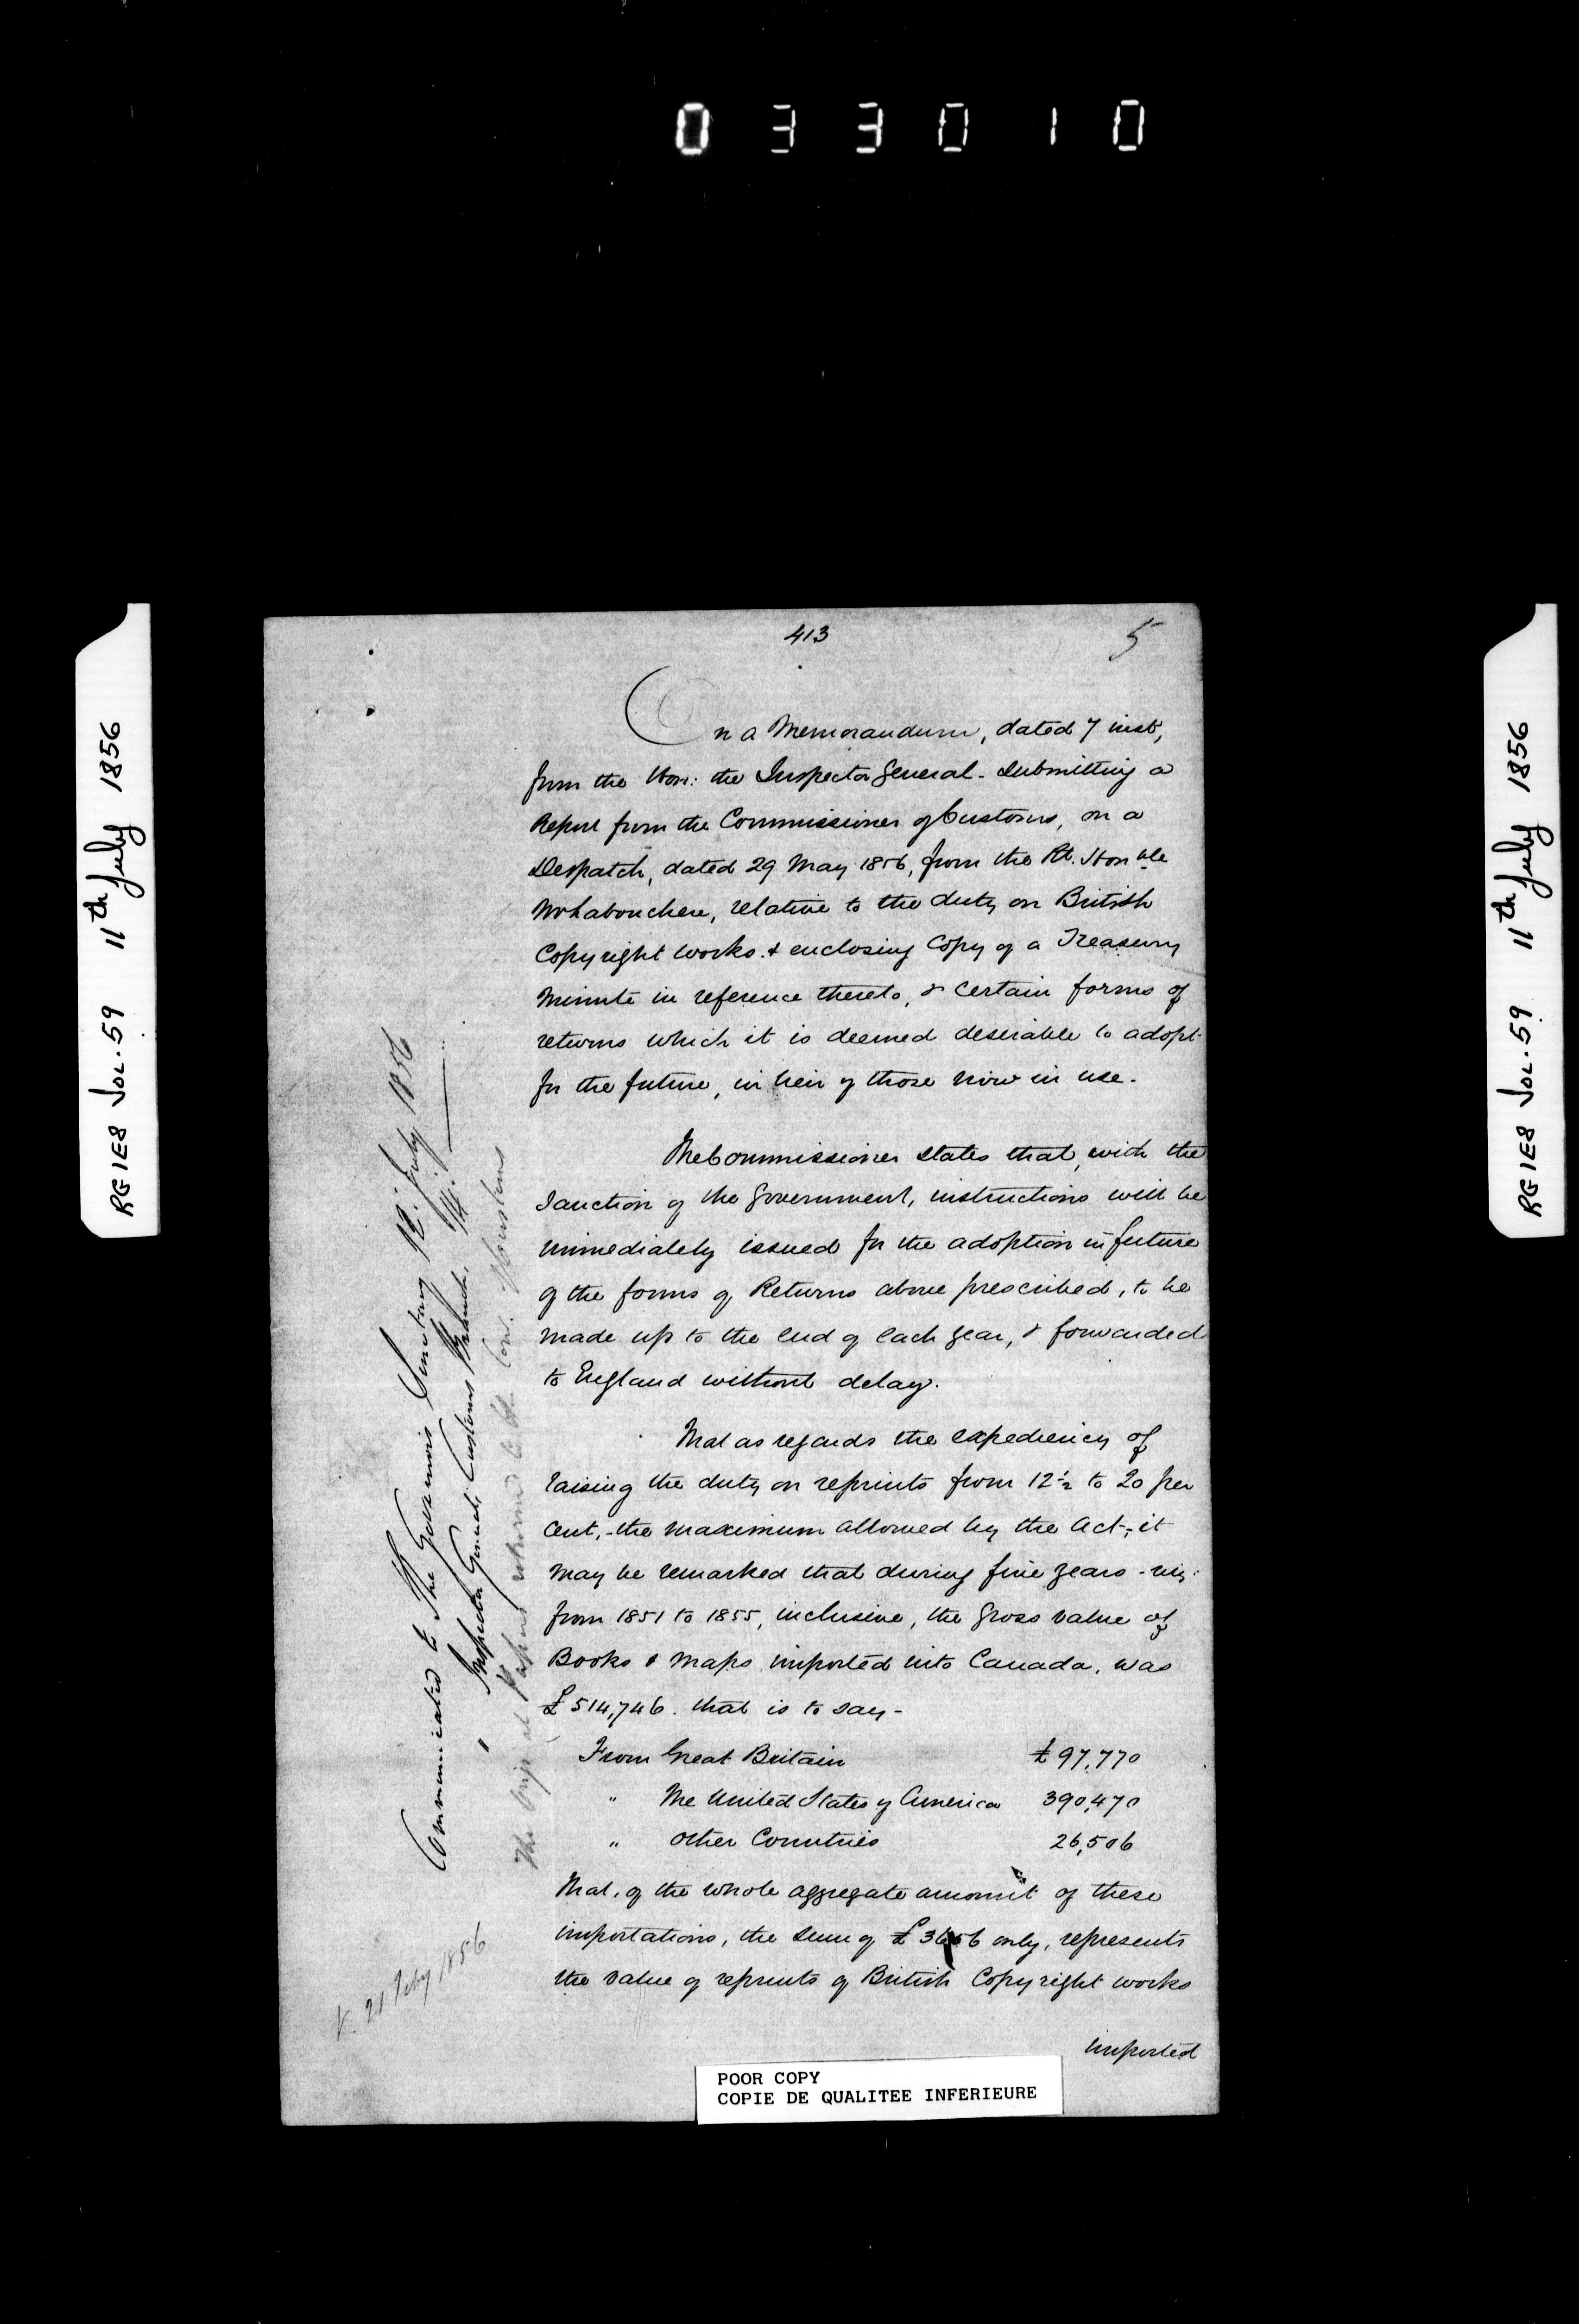 033010
RG1E8 Vol. 59 11th July 1856
413
5
On a Memorandum, dated 7 inst,
from the Hon: the Inspector General - Submitting a
Report from the Commissioner of Customs, on a
Despatch, dated 29 May 1856, from the Rt. Honble
Mr Labouchere, relative to the duty on British
Copyright works. & enclosing Copy of a Treasury
Minute in reference thereto, & certain forms of
returns which it is deemed desirable to adopt
for the future, in lieu of those now in use.
The Commissioner states that, with the
Sanction of the Government, instructions will be
immediately issued for the adoption in future
of the forms of Returns above prescribed, to be
made up to the end of each year, & forwarded
to England without delay.
That as regards the expediency of
raising the duty on reprints from 12 1/2 to 20 per
cent, - the maximum allowed by the Act, - it
may be remarked that during five years - viz:
from 1851 to 1855, inclusive, the gross value of
Books & Maps imported into Canada, was
£514,746. that is to say -
From Great Britain £97,770
" The United States of America 390,470
" Other Countries 26,506
That, of the whole aggregate amount of these
importations, the sum of £ only, represents
the value of reprints of British Copyright works
imported
Communicated to The Governors Secretary 12. July 1856
" Inspector Genl: Customs Branch. 14. "
The original Papers returned to the Com. of Customs
V. 21 Feby 1856
POOR COPY
COPIE DE QUALITEE INFERIEURE
RG1E8 Vol. 59 11th July 1856